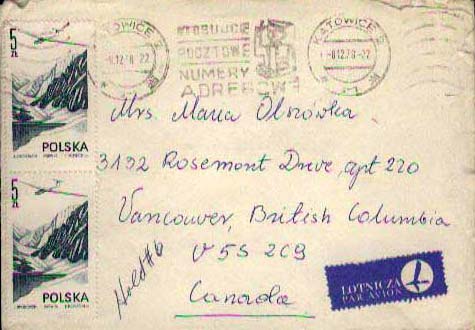 5
ZŁ
POLSKA
5
ZŁ
POLSKA
KATOWICE 2
22
STOSUJCIE
POCZTOWE
NUMERY
ADRESOWE
KATOWICE 2
-8.12.78-22
Mrs. Maria
3192 Rosemont Drive, apt 220
Vancouver, British Columbia
V5S 2C9
Canada
LOTNICZA
PAR AVION